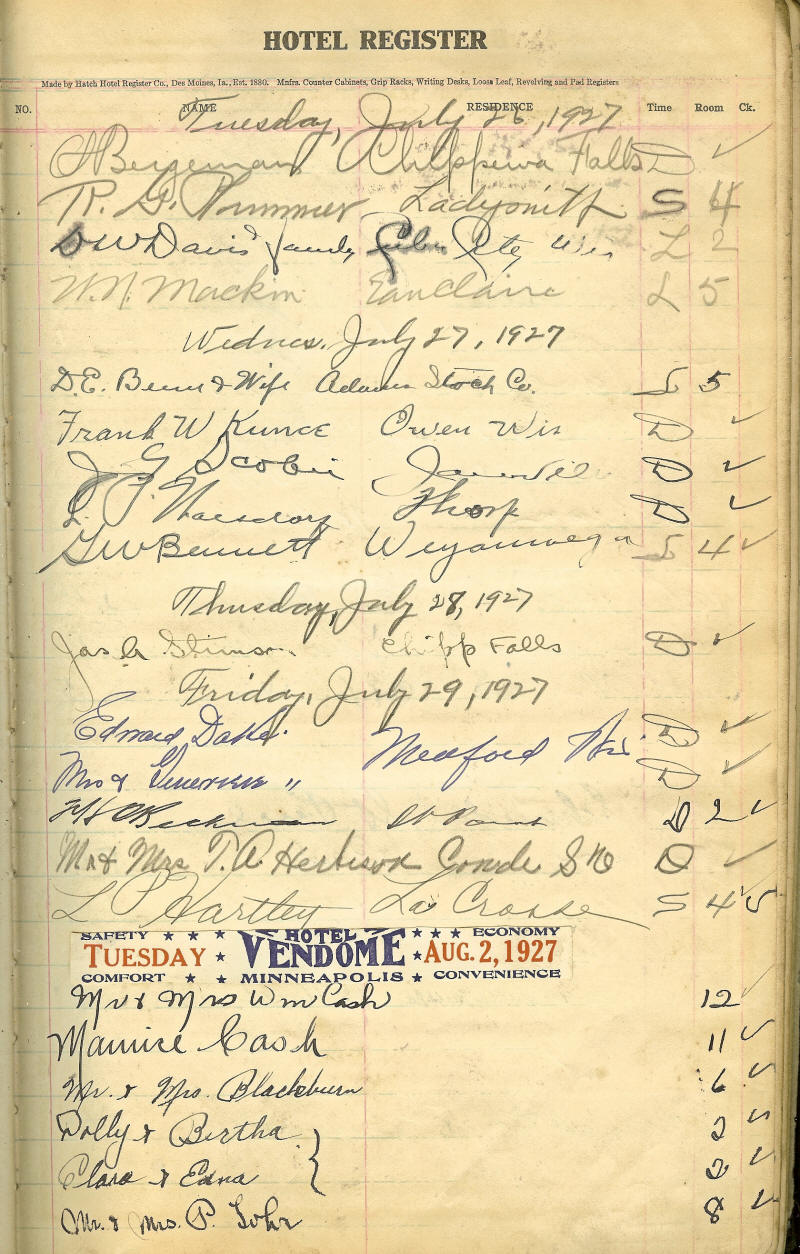 HOTEL REGISTER
Made by Hatch Hotel Register Co., Des Moines, Ia., Est. 1880. Mnfrs. Counter Cabinets, Grip Racks, Writing Desks, Loose Leaf, Revolving and Pad Registers
NO. NAME RESIDENCE Time Room Ck.
Tuesday, July 26, 1927
Bergeman Chippewa Falls D ✓
R. G. Plummer Ladysmith S 4
D W Davis Wis L 2
W. N. Mackin Eau Claire L 5
Wednes. July 27, 1927
D. E. & Wife Adams Stock Co. S 5
Frank W Kunce Owen Wis D ✓
J G Scobie D ✓
Thorp D ✓
G W Bennett Weyauwega S 4 ✓
Thusday, July 28, 1927
Jas A Stimson Chipp Falls D ✓
Friday, July 29, 1927
Edward Medford Wis D ✓
Mrs & Genevieve " D ✓
Beckman St Paul D 2 ✓
Mr & Mrs T. A. Herbison Conde S D ✓
L P Hartley La Crosse S 4 ✓
SAFETY ★ ★ ★ HOTEL ★ ★ ★ ECONOMY
TUESDAY ★ VENDOME ★ AUG. 2, 1927
COMFORT ★ ★ MINNEAPOLIS ★ CONVENIENCE
Mr & Mrs Wm Cash 12 ✓
Maurice Cash 11 ✓
Mr. & Mrs. Blackburn 6 ✓
Dolly & Bertha 2 ✓
Clara & Edna 2 ✓
Mr. & Mrs. P. Lohr 8 ✓